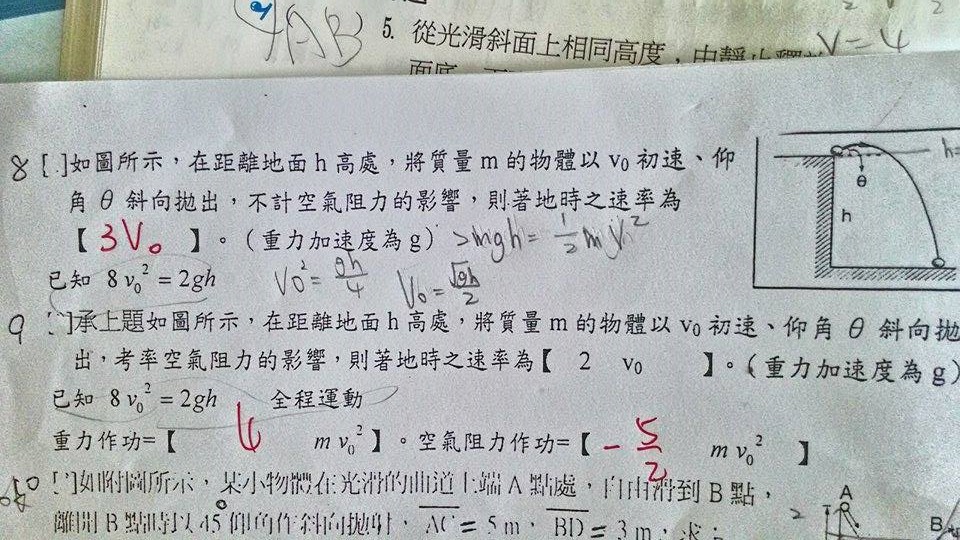 4AB
5. 從光滑斜面上相同高度，由靜止釋放
V=4
8 [.]如圖所示，在距離地面 h 高處，將質量 m 的物體以 v₀ 初速、仰
角 θ 斜向拋出，不計空氣阻力的影響，則著地時之速率為
【 3V₀ 】。(重力加速度為 g) >mgh= 1/2 m V²
已知 8 v₀² = 2gh V₀² = gh/4 V₀ = √gh/2
h=
θ
h
9 [ ]承上題如圖所示，在距離地面 h 高處，將質量 m 的物體以 v₀ 初速、仰角 θ 斜向拋
出，考率空氣阻力的影響，則著地時之速率為【 2 v₀ 】。(重力加速度為 g)
已知 8 v₀² = 2gh 全程運動
重力作功=【 4 m v₀² 】。空氣阻力作功=【 - 5/2 m v₀² 】
[ ]如附圖所示，某小物體在光滑的曲道上端 A 點處，自由滑到 B 點，
離開 B 點時以 45° 仰角作斜向拋射，AC = 5 m，BD = 3 m，求：
A
B